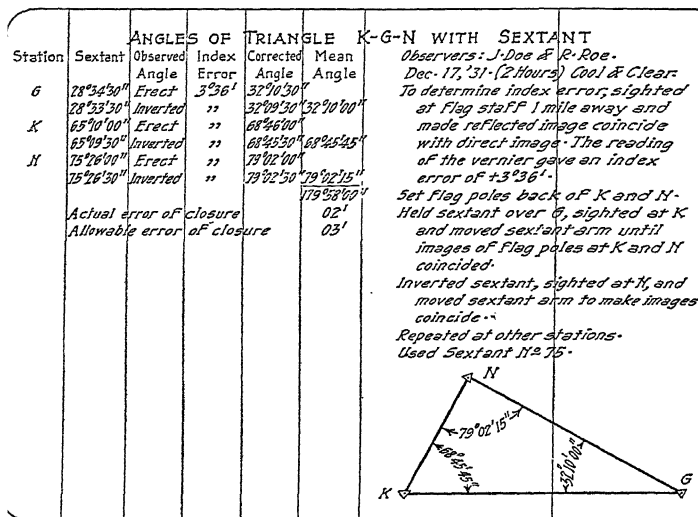 ANGLES OF TRIANGLE K-G-N WITH SEXTANT
Station Sextant Observed Angle Index Error Corrected Angle Mean Angle
G 28°34'30" Erect 3°36' 32°10'30"
28°33'30" Inverted " 32°09'30" 32°10'00"
K 65°10'00" Erect " 68°46'00"
65°09'30" Inverted " 68°45'30" 68°45'45"
N 75°26'00" Erect " 79°02'00"
75°26'30" Inverted " 79°02'30" 79°02'15"
179°58'00"
Actual error of closure 02'
Allowable error of closure 03'
Observers: J. Doe & R. Roe.
Dec. 17, '31. (2 Hours) Cool & Clear.
To determine index error, sighted
at flag staff 1 mile away and
made reflected image coincide
with direct image. The reading
of the vernier gave an index
error of +3°36'.
Set flag poles back of K and N.
Held sextant over G, sighted at K
and moved sextant arm until
images of flag poles at K and N
coincided.
Inverted sextant, sighted at N, and
moved sextant arm to make images
coincide..
Repeated at other stations.
Used Sextant Nº 75.
N
79°02'15"
68°45'45"
32°10'00"
K
G